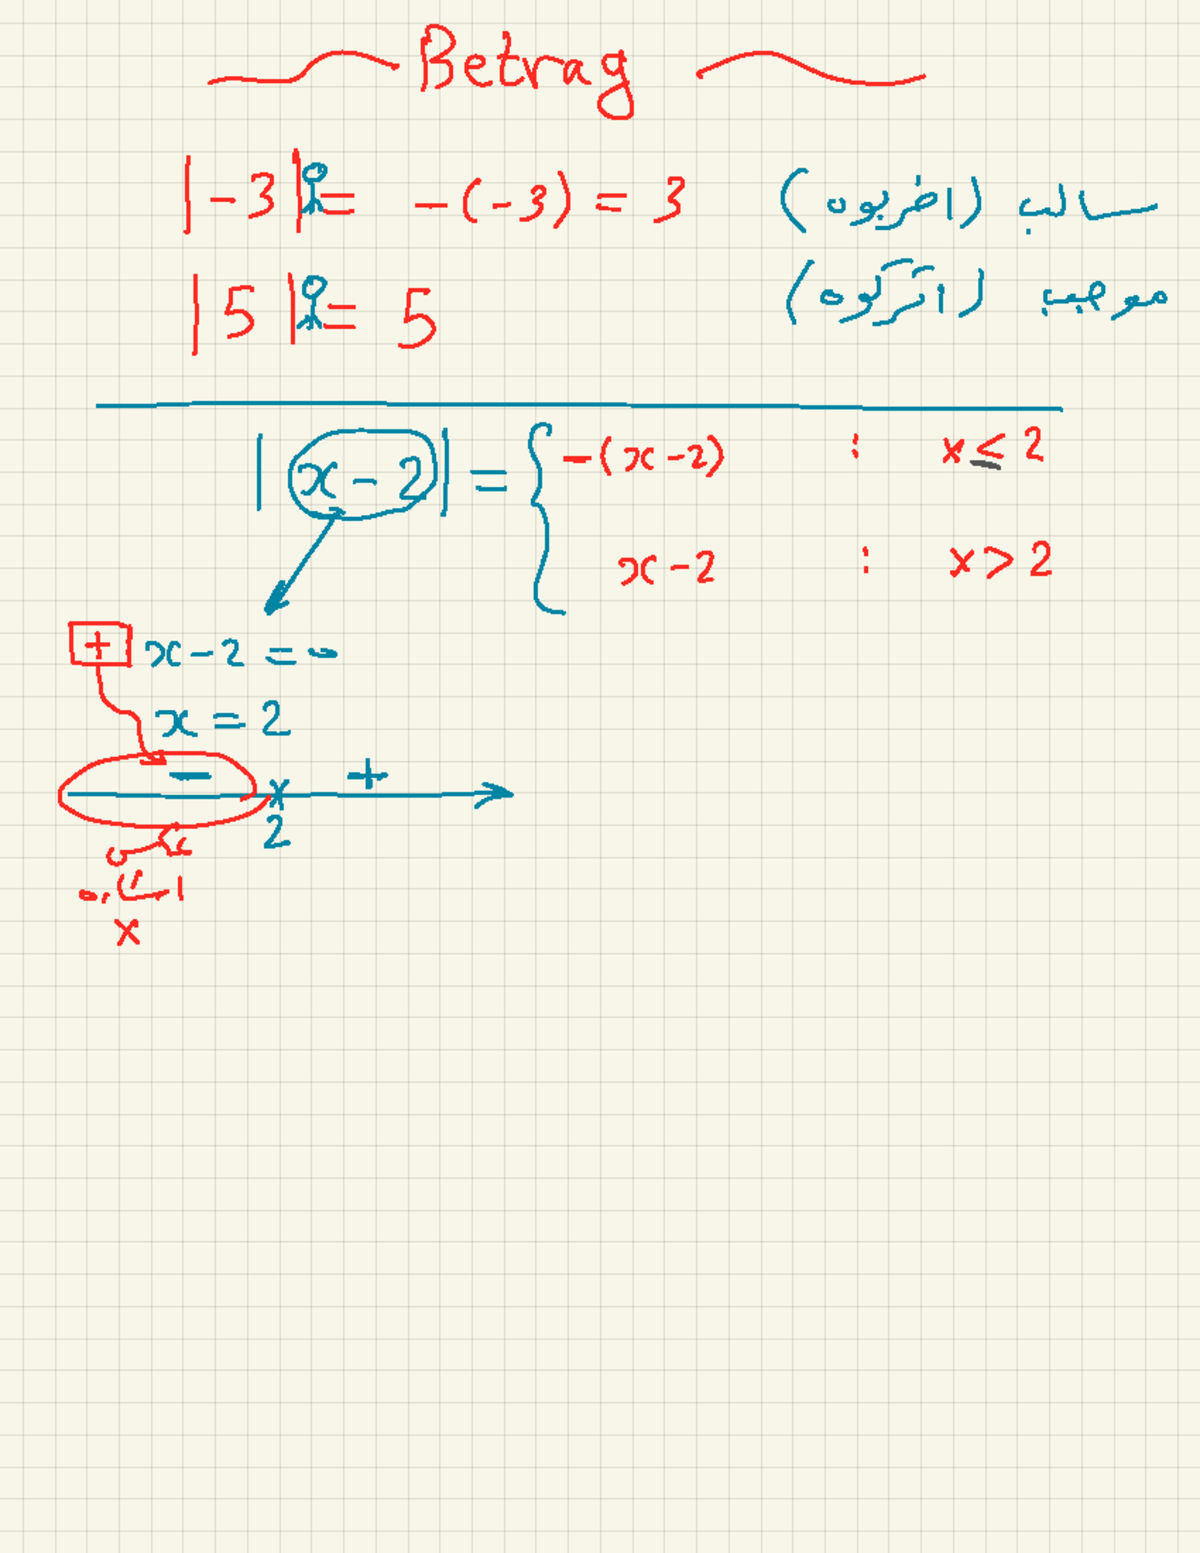 Betrag
|-3| = -(-3) = 3 سالب (اضربوه)
|5| = 5 موجب (اتركوه)
|x-2| = { -(x-2) : x ≤ 2
x-2 : x > 2
+ x-2 = 0
x = 2
- +
2
x